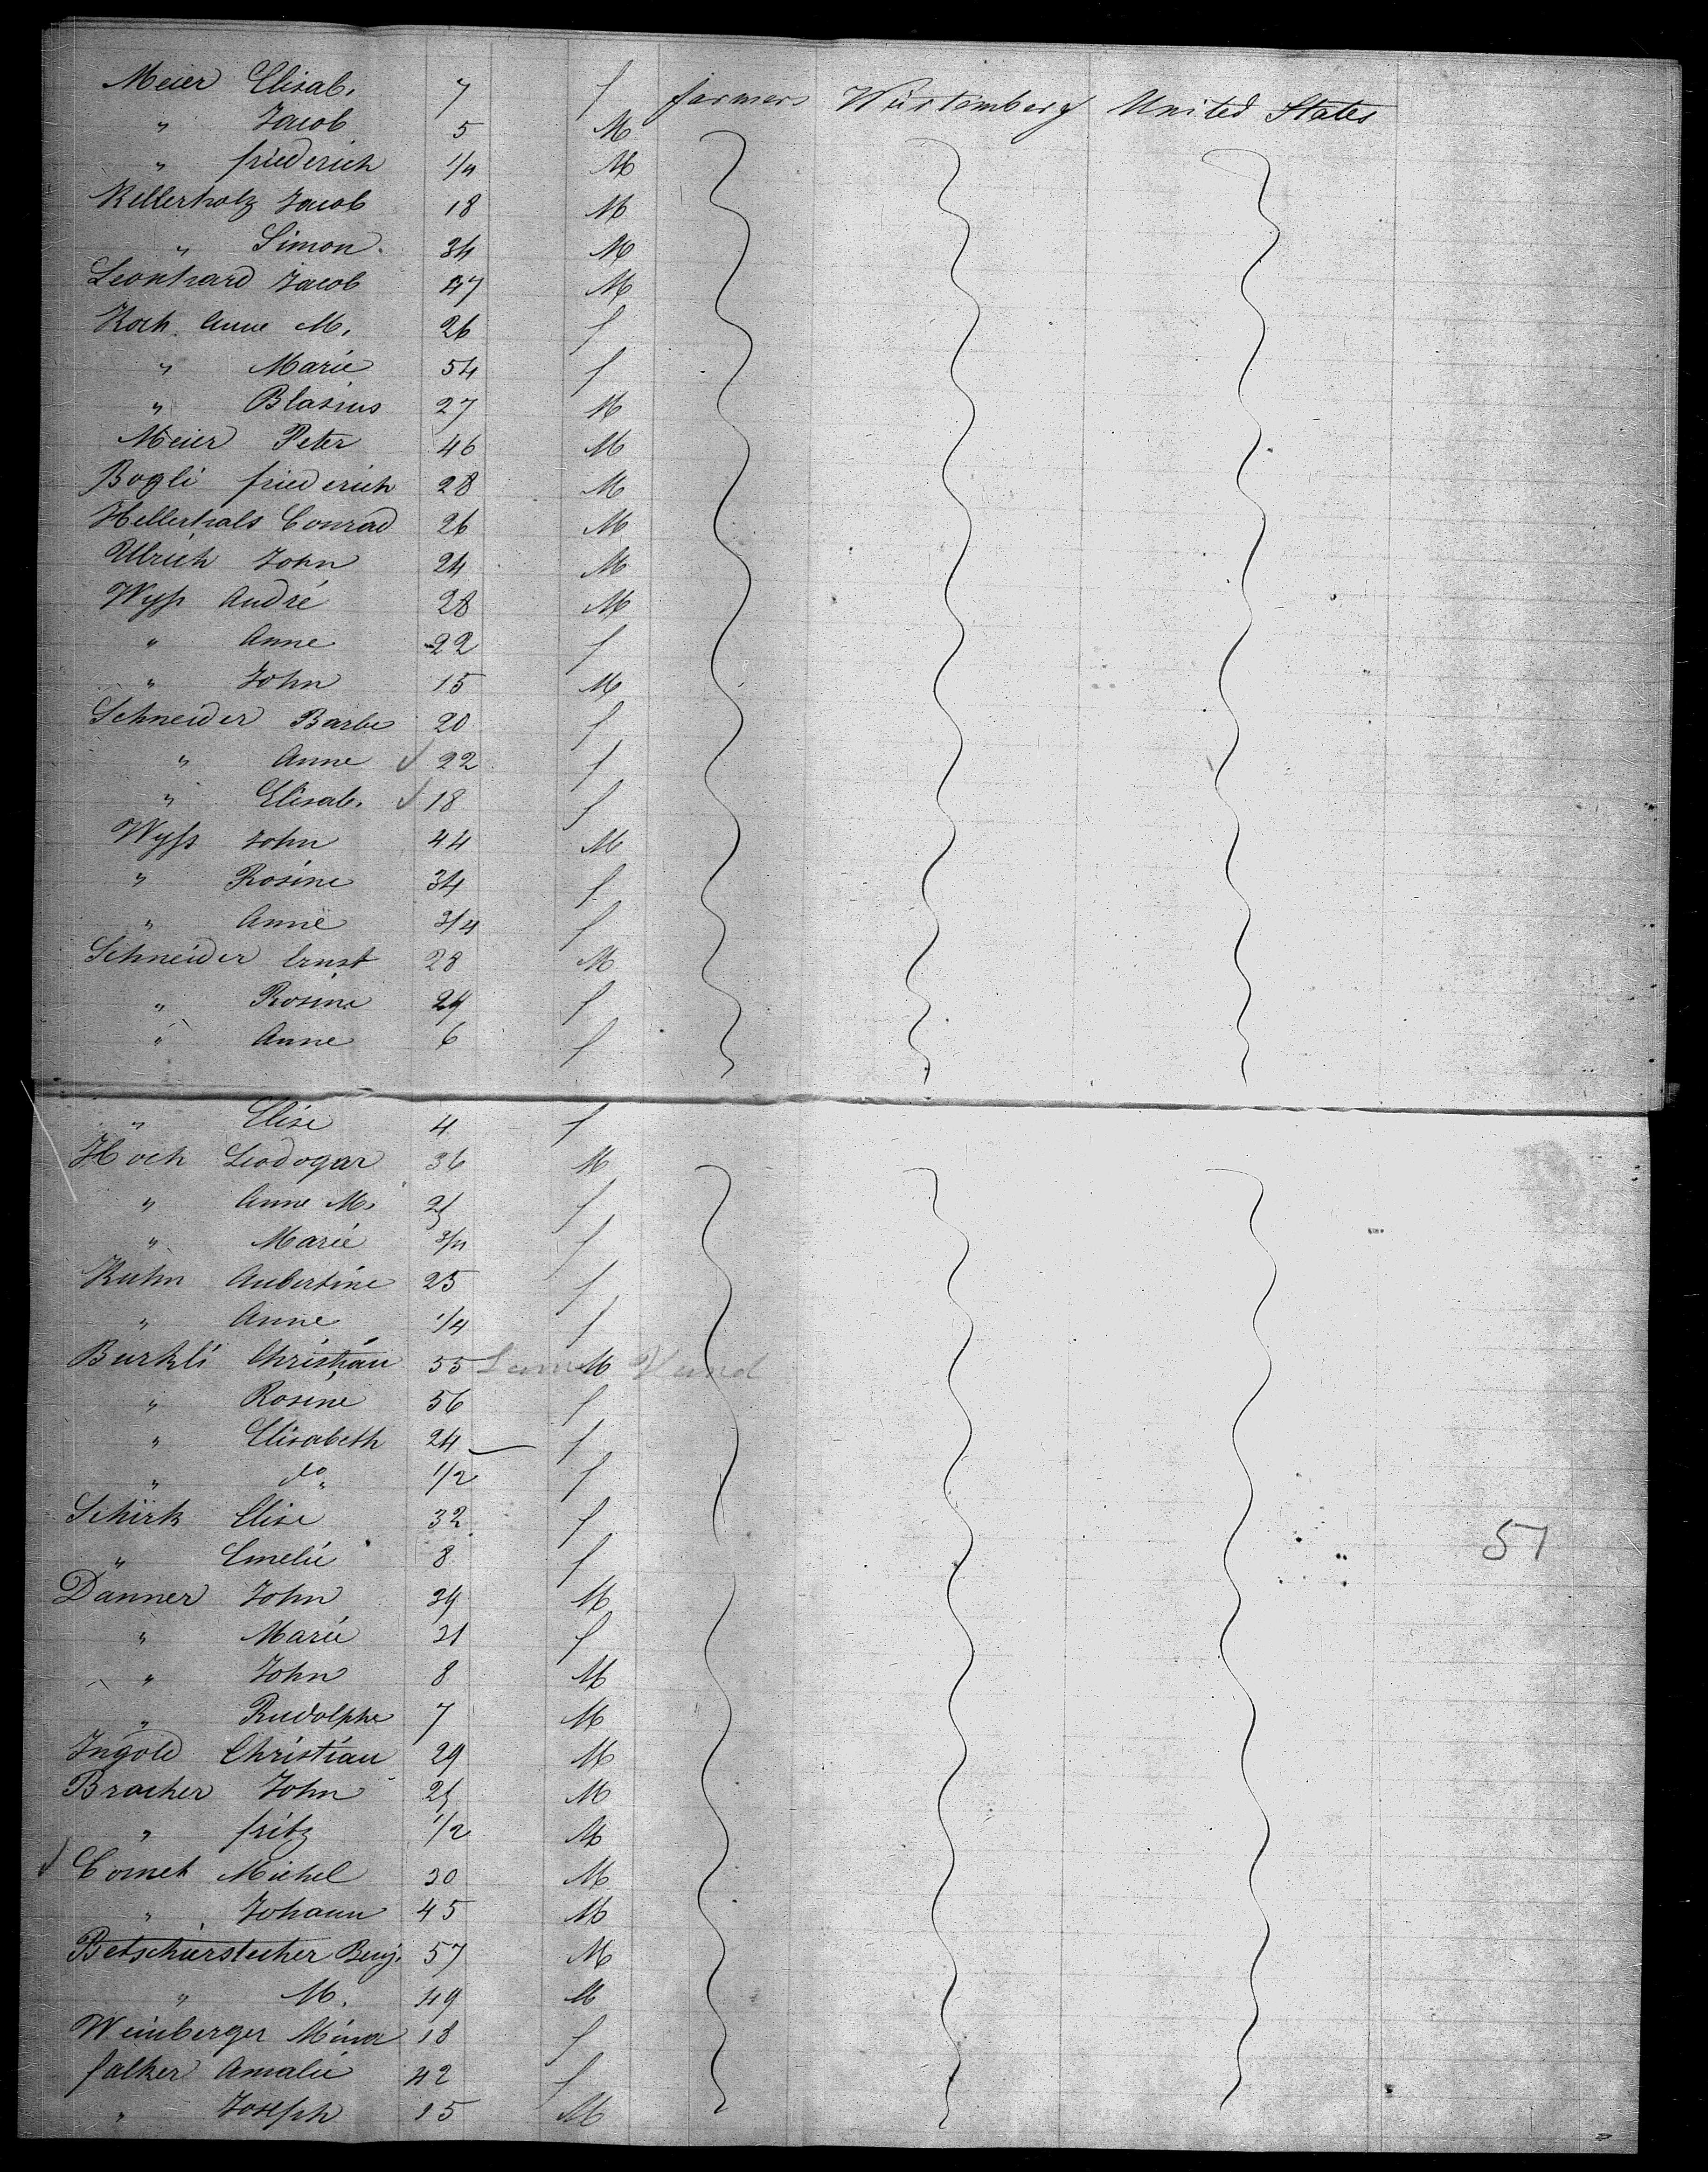 Meier Elisab. 7 f farmers Würtemberg United States
" Jacob 5 M
" friederich 1/4 M
Kellerholz Jacob 18 M
" Simon. 34 M
Leonhard Jacob 47 M
Koch Anne M. 26 f
" Marie 54 f
" Blasius 27 M
Meier Peter 46 M
Bogli friederich 28 M
Hellerhals Conrad 26 M
Ulrich John 24 M
Wyss André 28 M
" Anne 22 f
" John 15 M
Schneider Barbe 20 f
" Anne 22 f
" Elisab. 18 f
Wyss John 44 M
" Rosine 34 f
" Anne 3/4 f
Schneider Ernst 28 M
" Rosine 29 f
" Anne 6 f
" Elise 4 f
Hoch Leodogar 36 M
" Anne M. f
" Marie 3/4 f
Kuhn Aubertine 25 f
" Anne 1/4 f
Burkli Christian 55 M
" Rosine 56 f
" Elisabeth 24 f
" do " 1/2 f
Schirk Elise 32 f
" Emelie 8 f 51
Danner John 39 M
" Marie 31 f
" John 8 M
" Rudolphe 7 M
Ingold Christian 29 M
Bracher John M
" fritz 1/2 M
Michel 30 M
" Johann 45 M
Betschürstecher Benj. 57 M
" M. 49 M
Weinberger Mina 18 f
falker Amalie 42 f
" Joseph 15 M